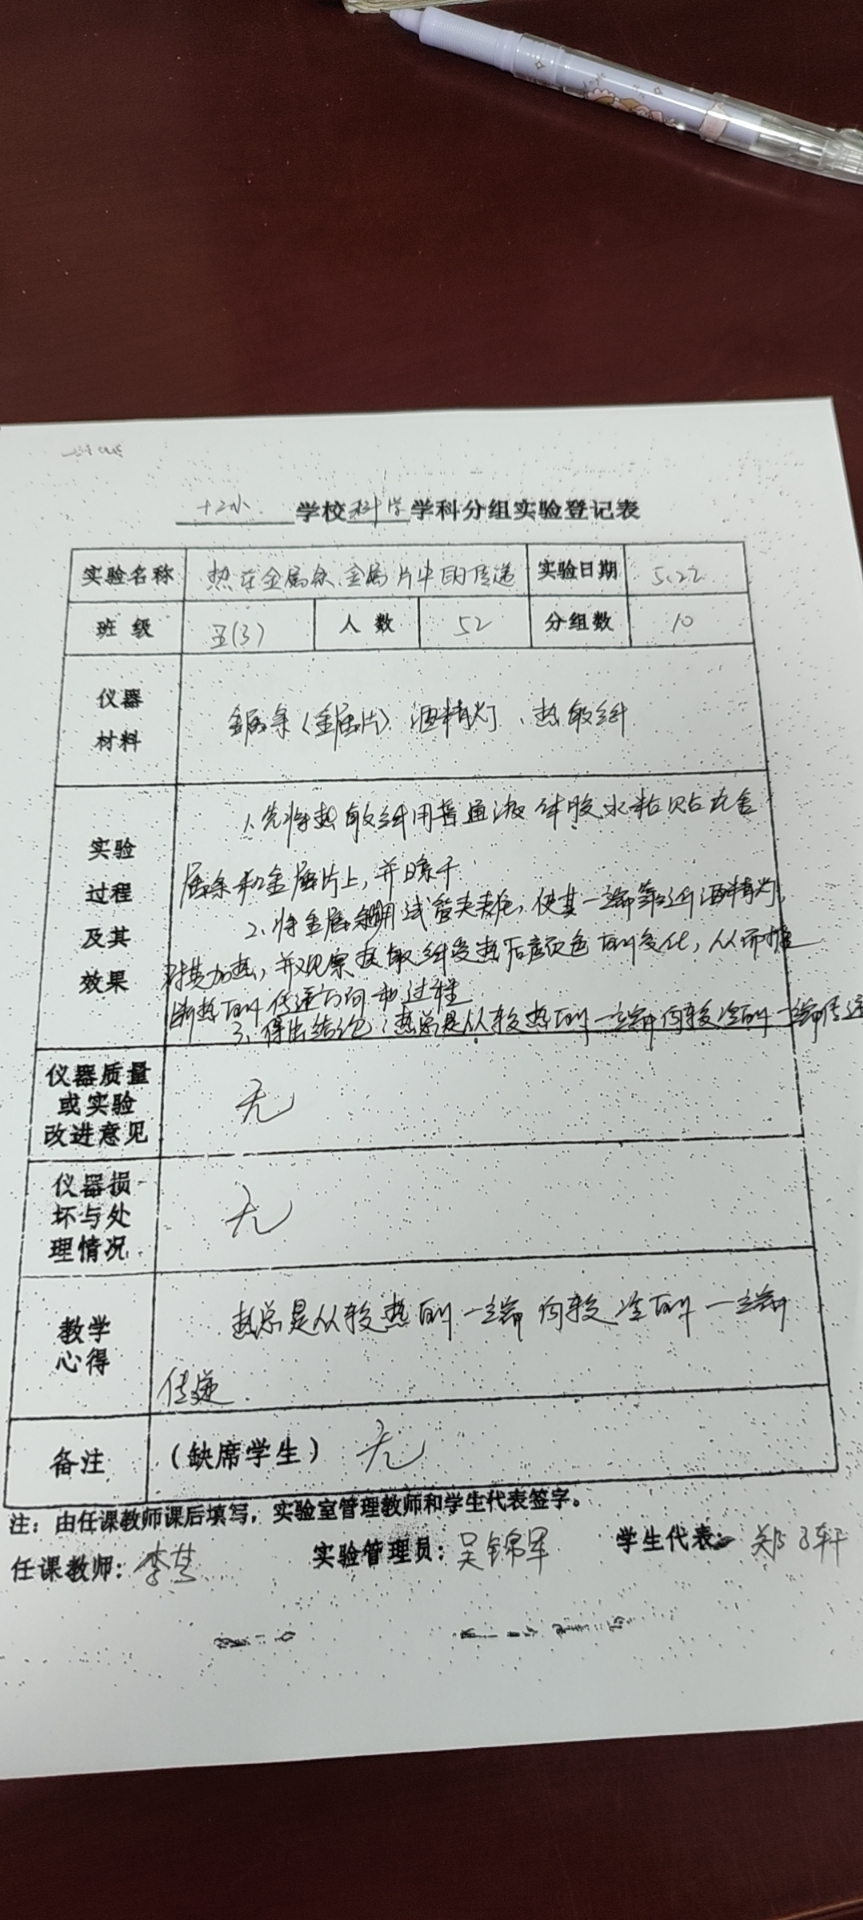 十二小 学校 科学 学科分组实验登记表
实验名称 热在金属条、金属片中的传递 实验日期 5.22
班 级 五(3) 人 数 52 分组数 10
仪器
材料
金属条(金属片)、酒精灯、热敏纸
实验
过程
及其
效果
1.先将热敏纸用普通液体胶水粘贴在金
属条和金属片上,并晾干
2.将金属条用试管夹夹住,使其一端靠近酒精灯,
对其加热,并观察热敏纸受热后颜色的变化,从而推
断热的传递方向和过程
3.得出结论:热总是从较热的一端向较冷的一端传递
仪器质量
或实验
改进意见
无
仪器损
坏与处
理情况
无
教学
心得
热总是从较热的一端向较冷的一端
传递.
备注 (缺席学生) 无
注:由任课教师课后填写,实验室管理教师和学生代表签字。
任课教师:李 实验管理员:吴锦军 学生代表:郑子轩